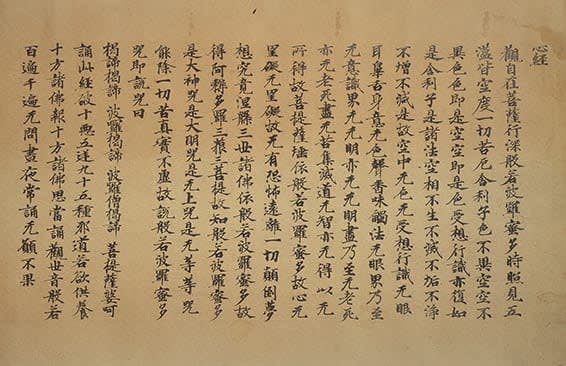 心經
觀自在菩薩行深般若波羅蜜多時照見五
薀皆空度一切苦厄舍利子色不異空空不
異色色即是空空即是色受想行識亦復如
是舍利子是諸法空相不生不滅不垢不淨
不增不減是故空中无色无受想行識无眼
耳鼻舌身意无色聲香味觸法无眼界乃至
无意識界无无明亦无无明盡乃至无老死
亦无老死盡无苦集滅道无智亦无得以无
所得故菩提薩埵依般若波羅蜜多故心无
罣礙无罣礙故无有恐怖遠離一切顛倒夢
想究竟涅槃三世諸佛依般若波羅蜜多故
得阿耨多羅三藐三菩提故知般若波羅蜜多
是大神咒是大明咒是无上咒是无等等咒
能除一切苦真實不虛故說般若波羅蜜多
咒即說咒曰
揭諦揭諦 波羅揭諦 波羅僧揭諦 菩提薩婆呵
誦此經破十惡五逆九十五種邪道若欲供養
十方諸佛報十方諸佛恩當誦觀世音般若
百遍千遍无間晝夜常誦无願不果